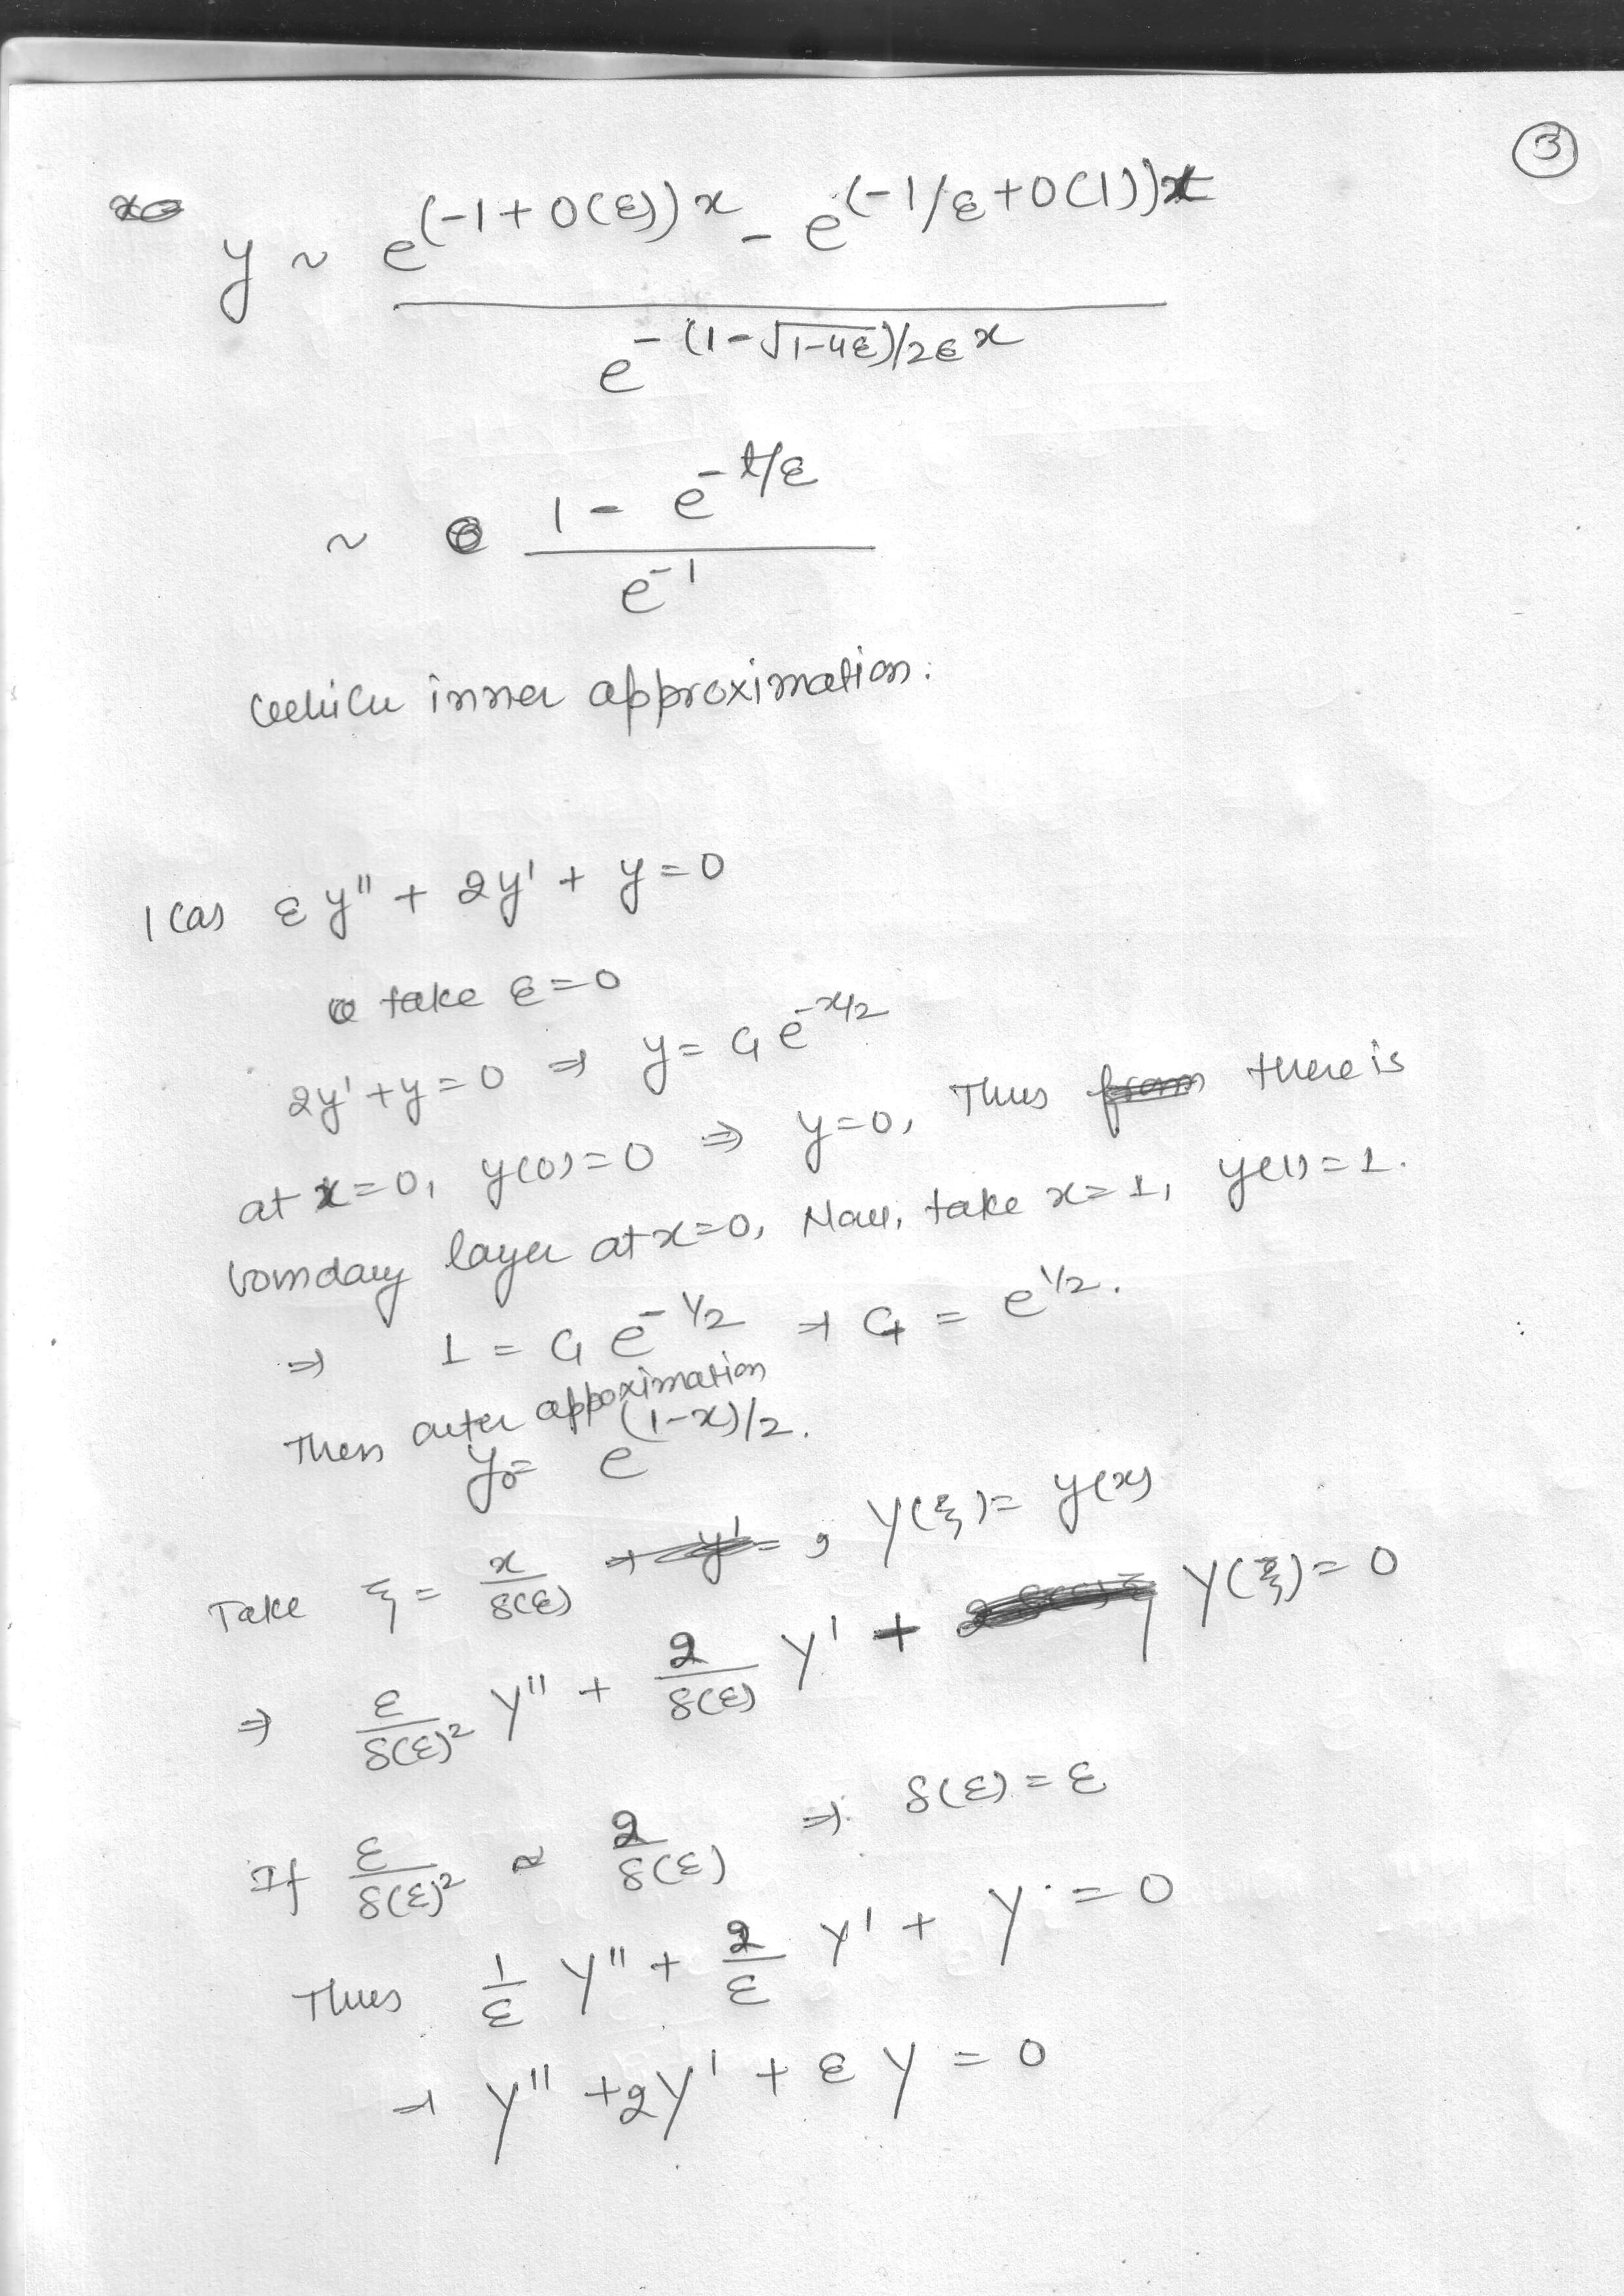 3
y ~ e^(-1+0(ε))x - e^(-1/ε+0(1))x / e^-(1-√1-4ε)/2ε x
~ 1 - e^-t/ε / e^-1
which inner approximation.
1(a) ε y'' + 2y' + y = 0
take ε = 0
2y' + y = 0 ⇒ y = C₁ e^-x/2
at x = 0, y(0) = 0 ⇒ y = 0, Thus there is
bomdary layer at x = 0, Now, take x = 1, y(1) = 1.
⇒ 1 = C₁ e^-1/2 ⇒ C₁ = e^1/2.
Then outer appoximation
y₀ = e^(1-x)/2.
Take ξ = x/δ(ε), Y(ξ) = y(x)
⇒ ε/δ(ε)² Y'' + 2/δ(ε) Y' + Y(ξ) = 0
If ε/δ(ε)² ~ 2/δ(ε) ⇒ δ(ε) = ε
Thus 1/ε Y'' + 2/ε Y' + Y = 0
⇒ Y'' + 2Y' + ε Y = 0